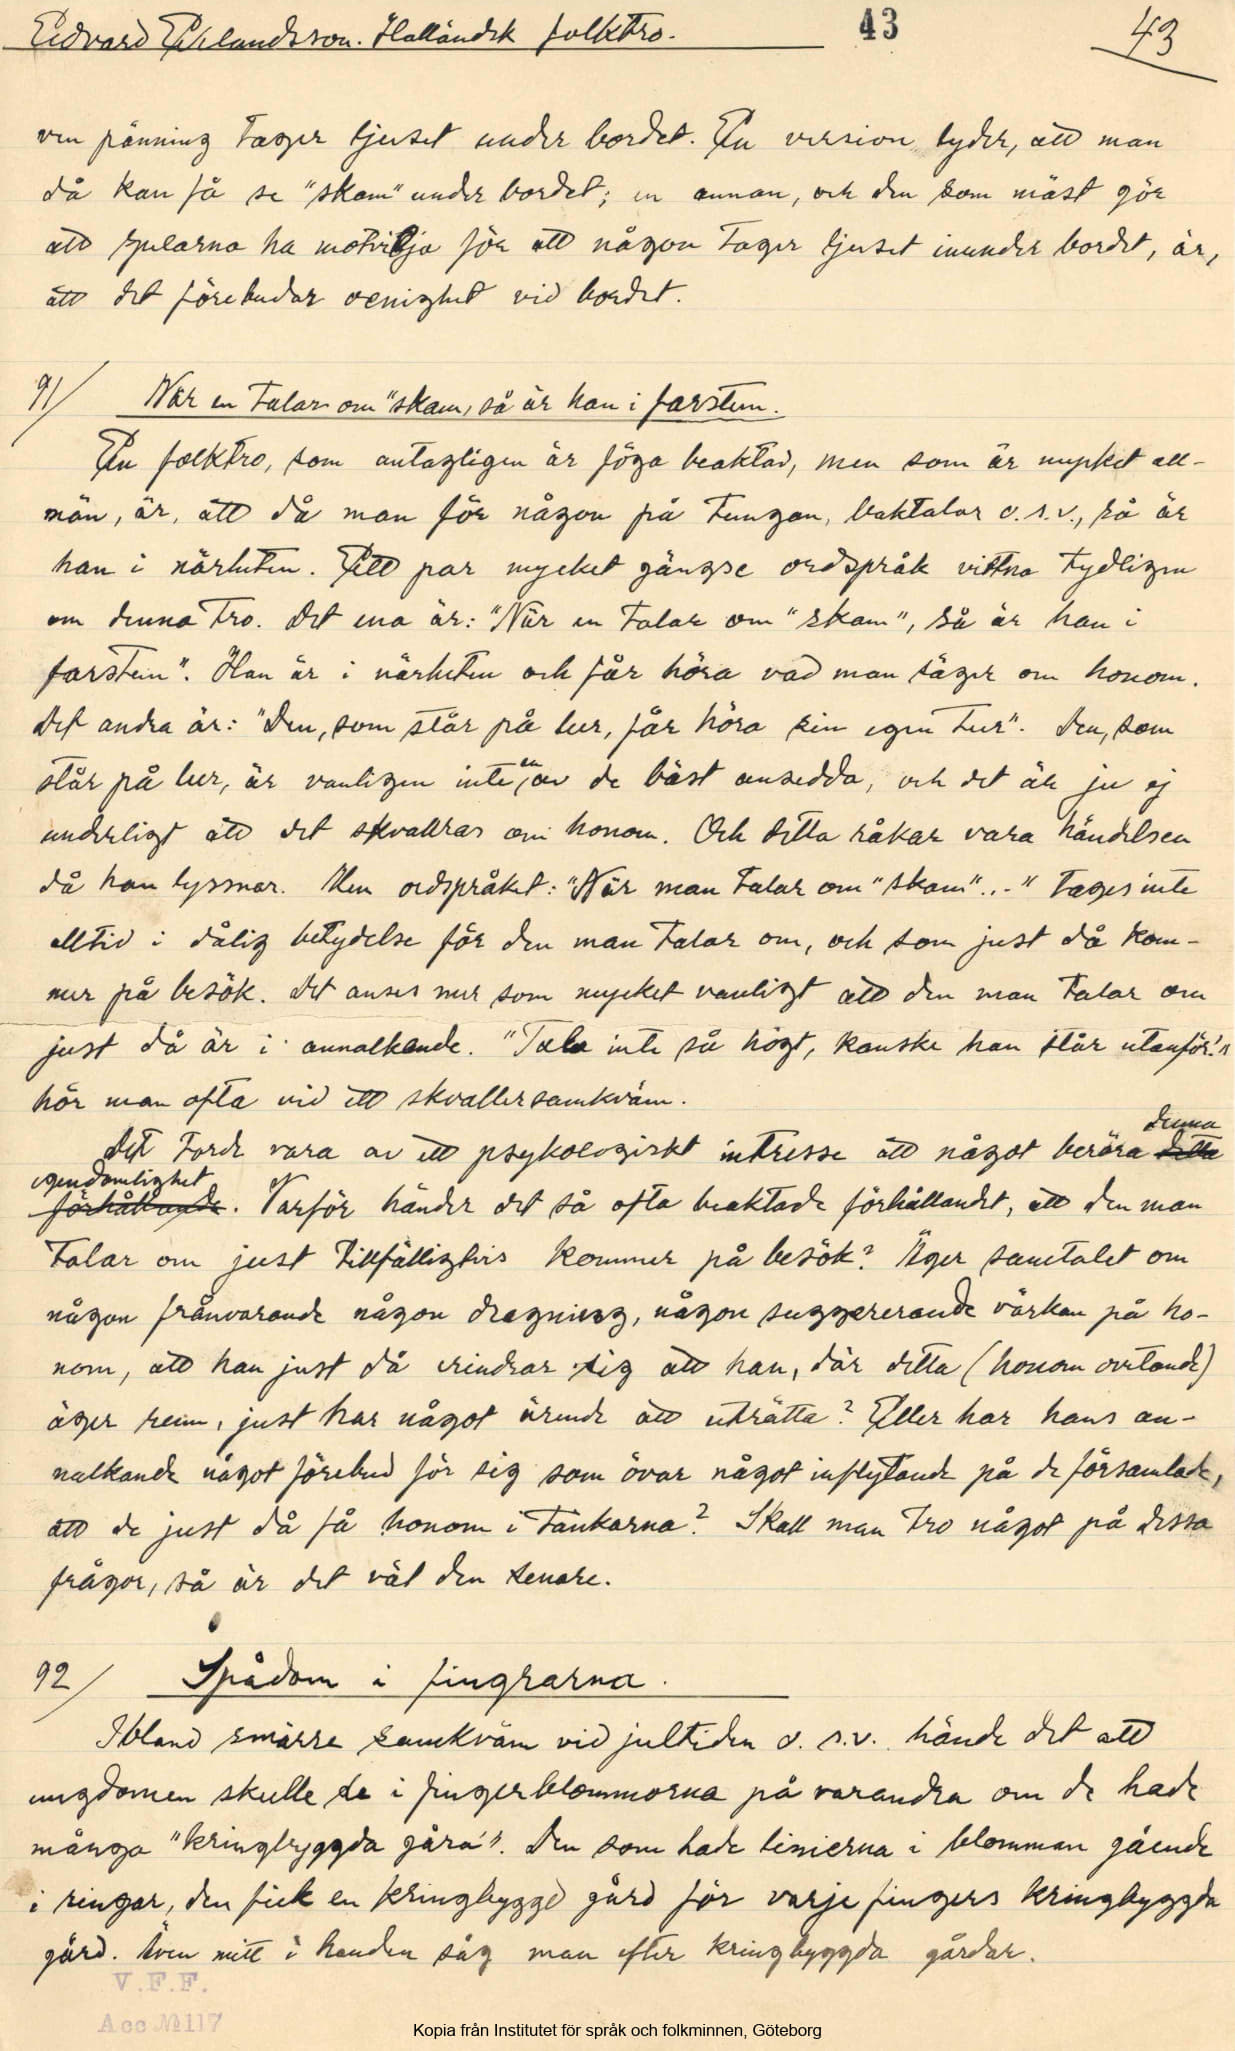 Edvard Erlandsson. Halländsk folktro.
43
43
ven pänning tager ljuset under bordet. En version lyder, att man
då kan få se "skam" under bordet; en annan, och den som mäst gör
att spelarna ha motvilja för att någon tager ljuset inunder bordet, är,
att det förebudar oenighet vid bordet.
91/ När en talar om "skam, så är han i farsten.
En folktro, som antagligen är föga beaktad, men som är mycket all-
män, är, att då man för någon på tungan, baktalar o.s.v., så är
han i närheten. Ett par mycket gängse ordspråk vittna tydligen
om denna tro. Det ena är: "När en talar om "skam", så är han i
farsten". Han är i närheten och får höra vad man säger om honom.
Det andra är: "Den, som står på lur, får höra sin egen tur". Den, som
står på lur, är vanligen inte en av de bäst ansedda, och det är ju ej
underligt att det skvallras om honom. Och detta råkar vara händelsen
då han lyssnar. Men ordspråket: "När man talar om "skam"..-" tages inte
alltid i dålig betydelse för den man talar om, och som just då kom-
mer på besök. Det anses mer som mycket vanligt att den man talar om
just då är i annalkande. "Tala inte så högt, kanske han står utanför!"
hör man ofta vid ett skvallersamkväm.
Det torde vara av ett psykologiskt intresse att något beröra denna detta
egendomlighet förhållande. Varför händer det så ofta beaktade förhållandet, att den man
talar om just tillfälligtvis kommer på besök? Äger samtalet om
någon frånvarande någon dragning, någon suggererande värkan på ho-
nom, att han just då erindrar sig att han, där detta (honom ovetande)
äger rum, just har något ärende att uträtta? Eller har hans an-
nalkande något förebud för sig som övar något inflytande på de församlade,
att de just då få honom i tankarna? Skall man tro något på dessa
frågor, så är det väl den senare.
92/ Spådom i fingrarna.
Ibland smärre samkväm vid jultiden o.s.v. hände det att
ungdomen skulle se i fingerblommorna på varandra om de hade
många "kringbyggda gåra". Den som hade linierna i blomman gående
i ringar, den fick en kringbyggd gård för varje fingers kringbyggda
gård. Även mitt i handen såg man efter kringbyggda gårdar.
V.F.F.
Acc №117
Kopia från Institutet för språk och folkminnen, Göteborg